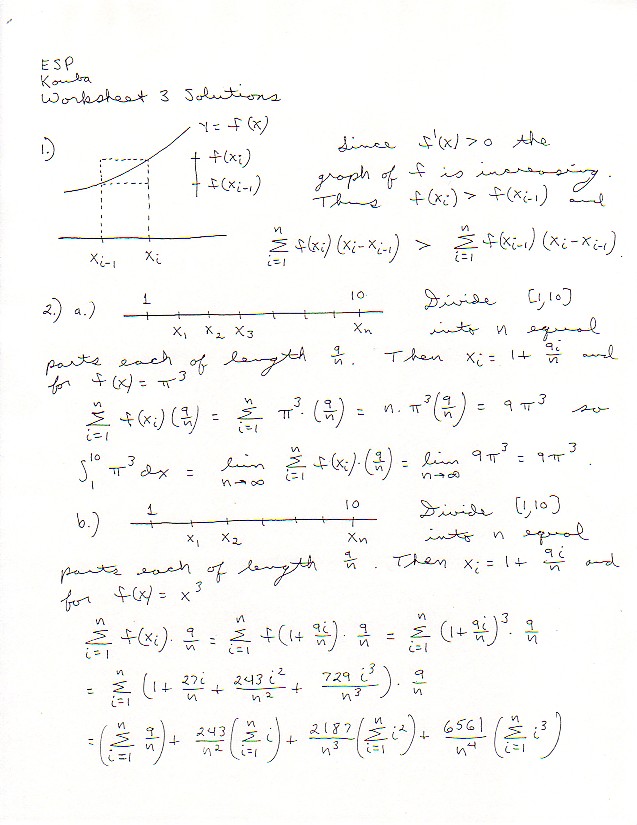 ESP
Kouba
Worksheet 3 Solutions
1.) y = f(x)
f(xᵢ)
f(xᵢ₋₁)
xᵢ₋₁ xᵢ
Since f'(x) > 0 the
graph of f is increasing.
Thus f(xᵢ) > f(xᵢ₋₁) and
∑ᵢ₌₁ⁿ f(xᵢ)(xᵢ - xᵢ₋₁) > ∑ᵢ₌₁ⁿ f(xᵢ₋₁)(xᵢ - xᵢ₋₁).
2.) a.) 1 10 Divide [1,10]
x₁ x₂ x₃ xₙ into n equal
parts each of length 9/n. Then xᵢ = 1 + 9i/n and
for f(x) = π³
∑ᵢ₌₁ⁿ f(xᵢ)(9/n) = ∑ᵢ₌₁ⁿ π³·(9/n) = n·π³(9/n) = 9π³ so
∫₁¹⁰ π³ dx = lim n→∞ ∑ᵢ₌₁ⁿ f(xᵢ)·(9/n) = lim n→∞ 9π³ = 9π³.
b.) 1 10 Divide [1,10]
x₁ x₂ xₙ into n equal
parts each of length 9/n. Then xᵢ = 1 + 9i/n and
for f(x) = x³
∑ᵢ₌₁ⁿ f(xᵢ)·9/n = ∑ᵢ₌₁ⁿ f(1 + 9i/n)·9/n = ∑ᵢ₌₁ⁿ (1 + 9i/n)³·9/n
= ∑ᵢ₌₁ⁿ (1 + 27i/n + 243i²/n² + 729i³/n³)·9/n
= (∑ᵢ₌₁ⁿ 9/n) + 243/n² (∑ᵢ₌₁ⁿ i) + 2187/n³ (∑ᵢ₌₁ⁿ i²) + 6561/n⁴ (∑ᵢ₌₁ⁿ i³)